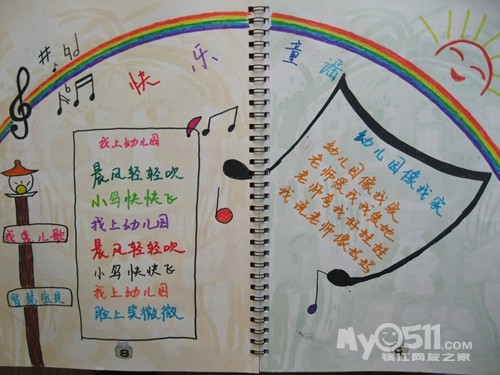 快乐童谣
我上幼儿园
晨风轻轻吹
小鸟快快飞
我上幼儿园
晨风轻轻吹
小鸟快快飞
我上幼儿园
脸上笑微微
8
儿歌
幼儿园像我家
幼儿园像我家
老师爱我我爱她
老师夸我好娃娃
我说老师像妈妈
My0511.com
镇江网友之家